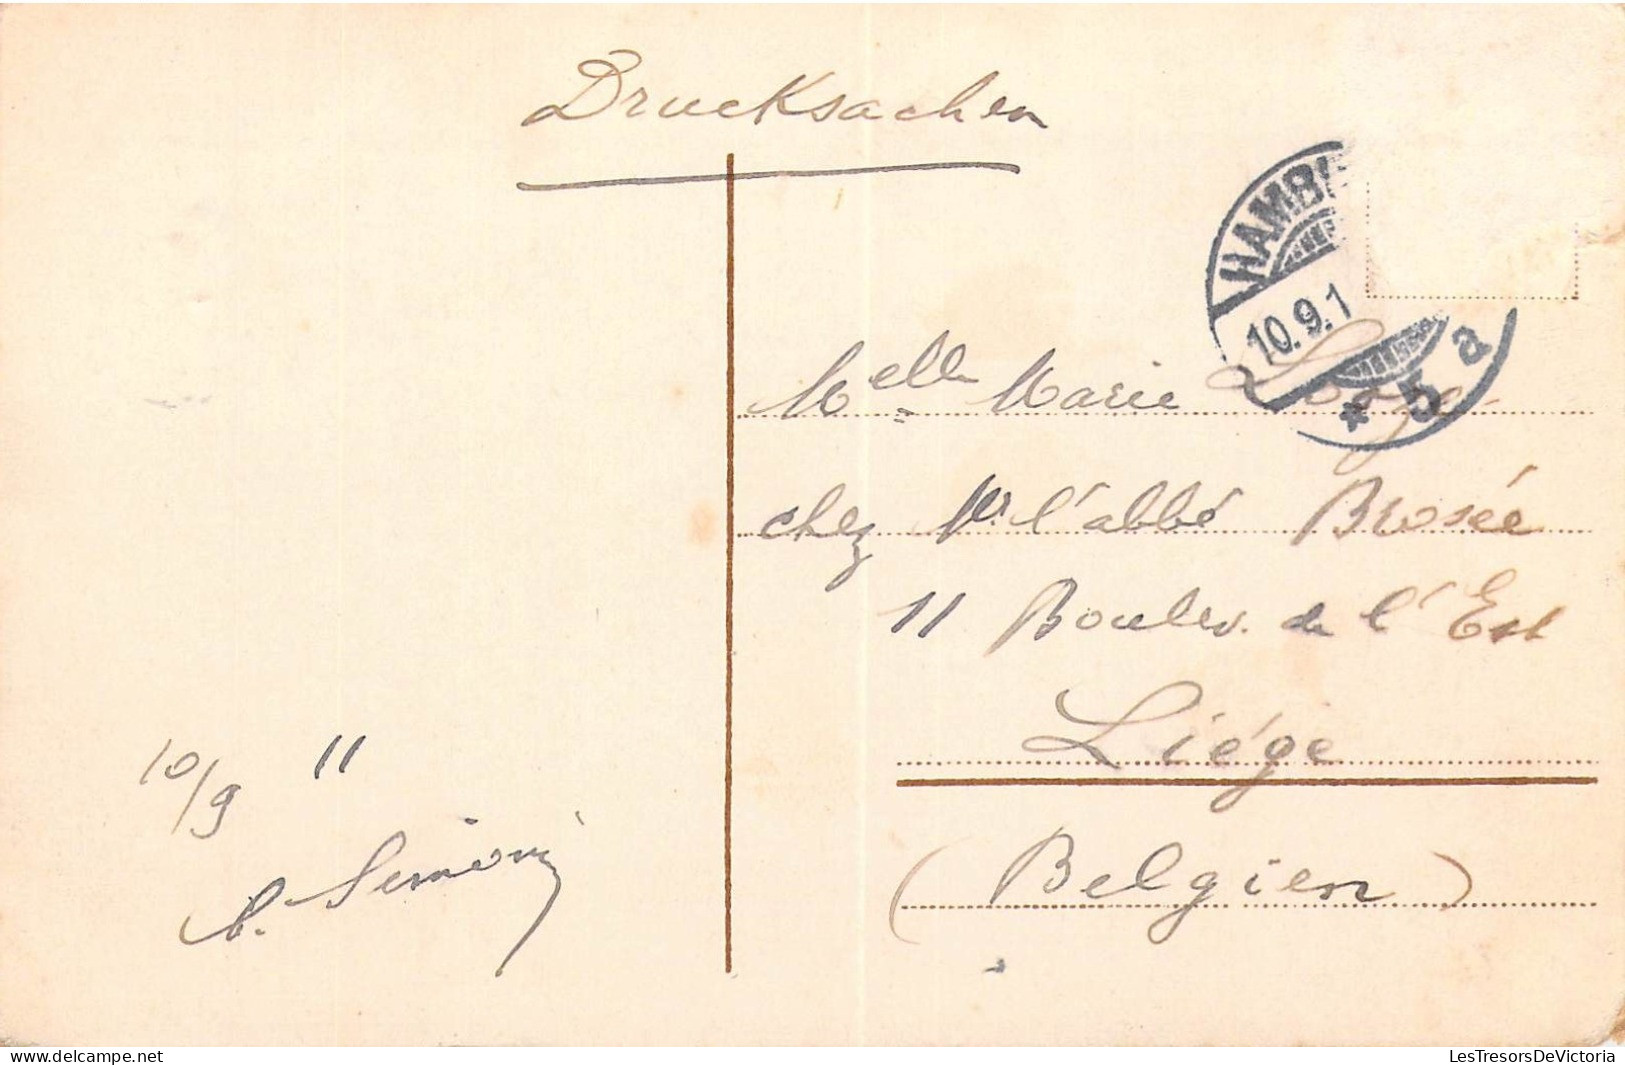 Drucksachen
HAMBU
10.9.1
* 5 a
Melle Marie
chez Mr. l'abbé Brosée
11 Boulev. de l'Est
Liége
(Belgien)
10/9 11
delcampe.net
LesTresorsDeVictoria